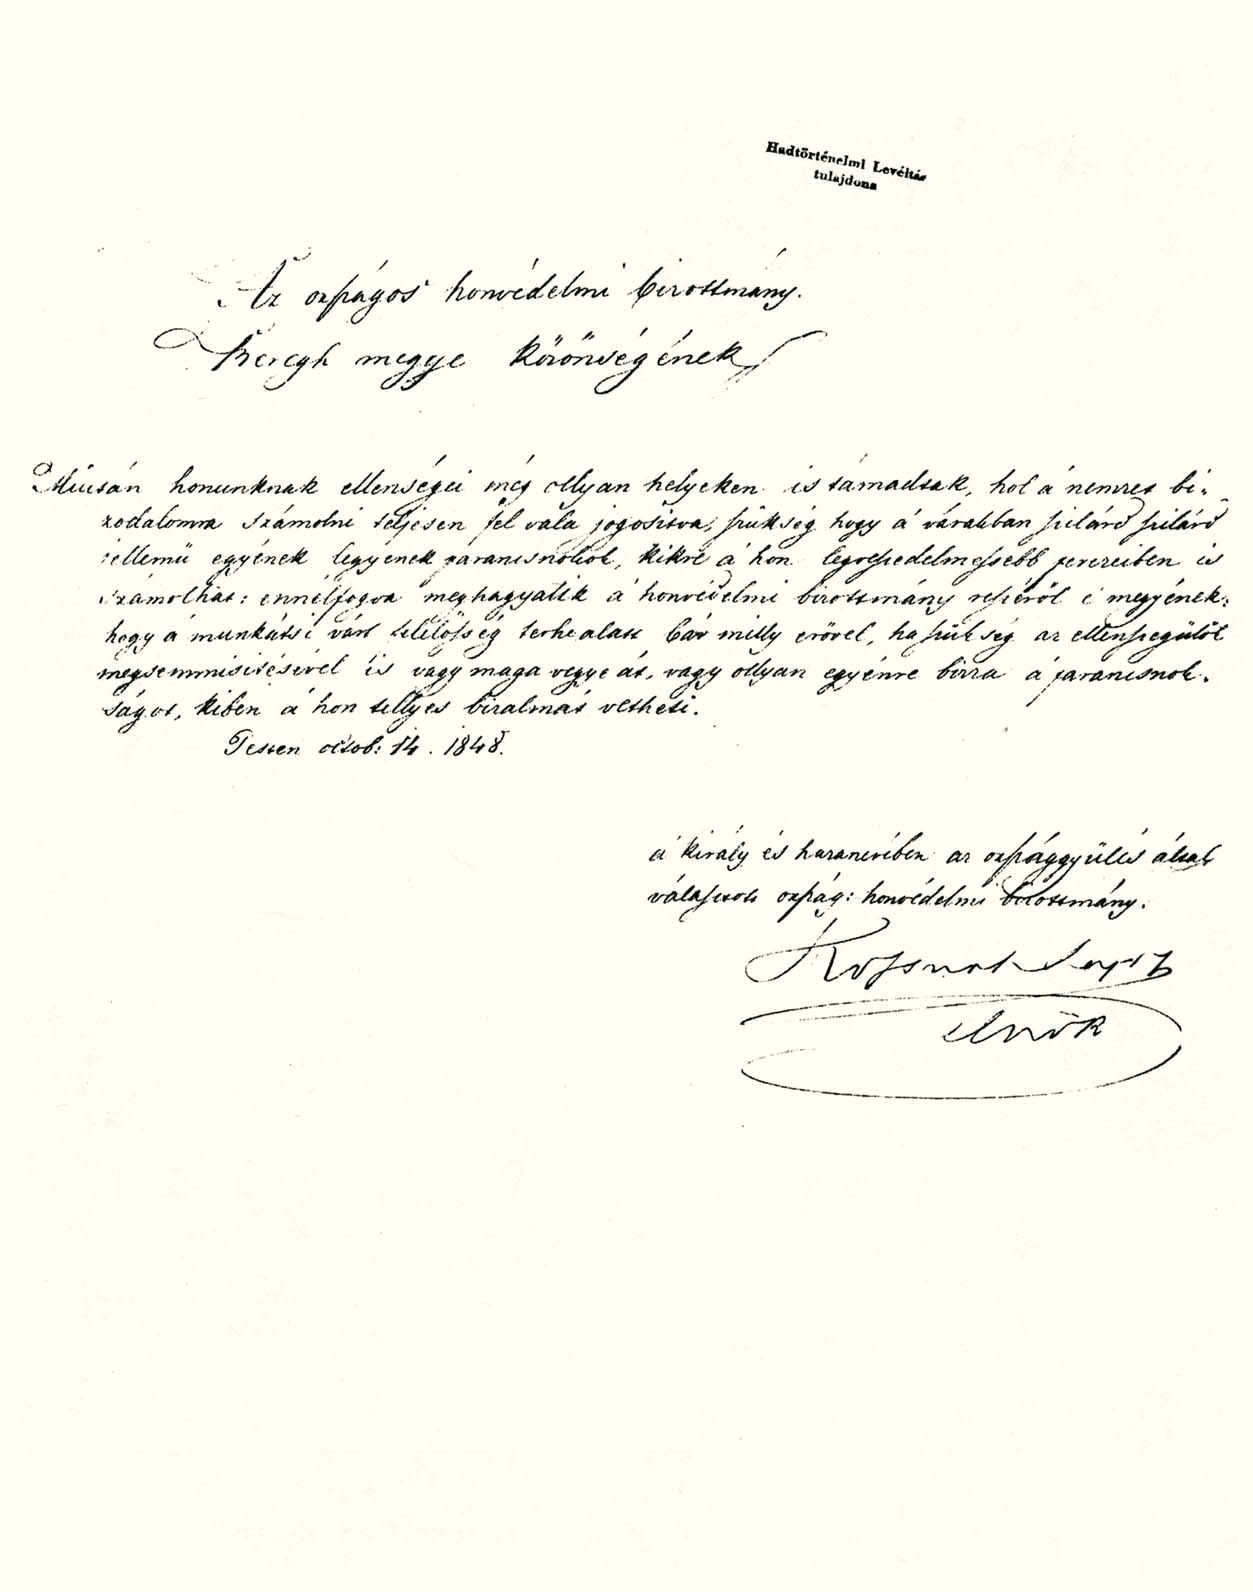 Hadtörténelmi Levéltár
tulajdona
Az országos honvédelmi bizottmány.
Beregh megye Közönségének
Miután honunknak ellenségei még ollyan helyeken is támadtak, hol a' nemzet bi-
zodalomra számolni teljesen fel vala jogosítva, szükség hogy a' várakban szilárd szilárd
jellemü egyének legyenek parancsnokok, kikre a' hon legveszedelmesebb perczeiben is
számolhat: ennélfogva meghagyatik a' honvédelmi bizottmány részéről e' megyének:
hogy a' munkátsi várt felelősség terhe alatt bár milly erővel, ha szükség az ellenszegülők
megsemmisitésével is vagy maga vegye át, vagy ollyan egyénre bizza a' parancsnok-
ságot, kiben a' hon tellyes bizalmát vetheti.
Pesten octob: 14. 1848.
a' király és hazanevében az országgyülés által
választott ország: honvédelmi bizottmány.
Kossuth Lajos
elnök